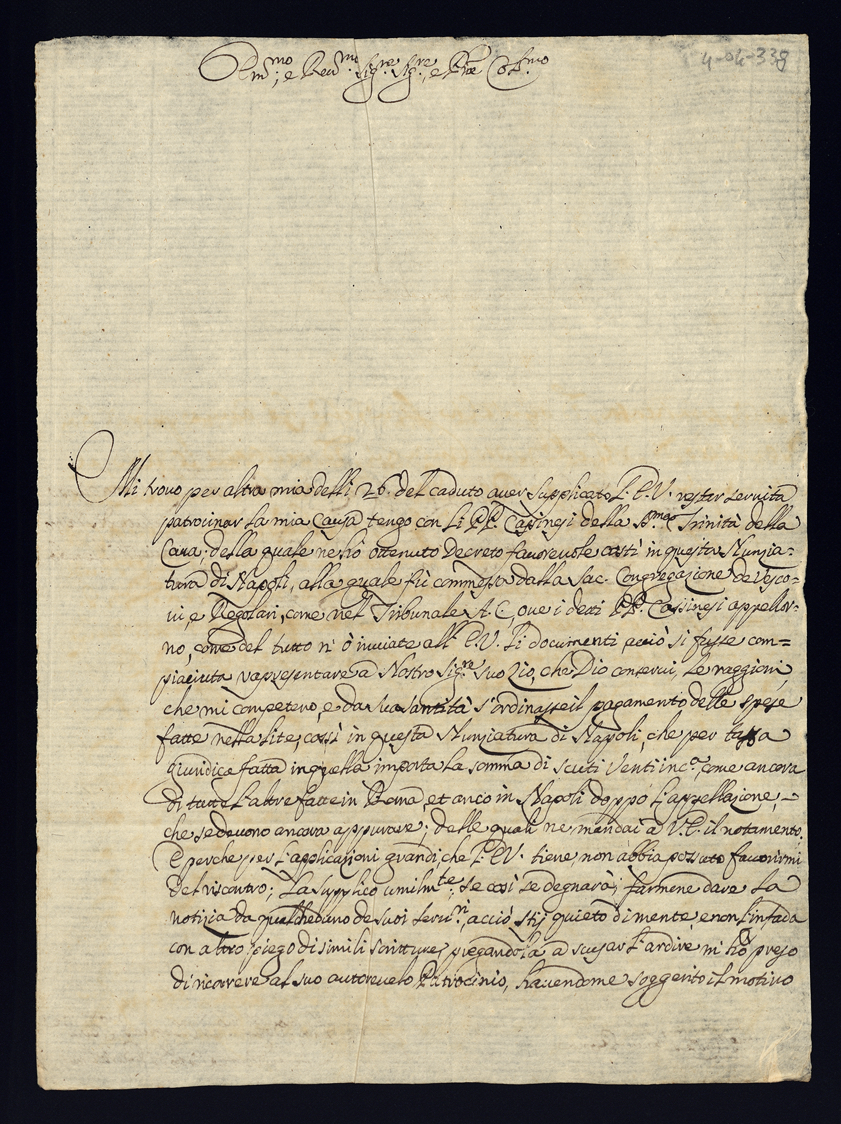 4-04-338
Em.mo, e Rev.mo Sig.re Sig.re, e P.ne Col.mo
Mi trovo per altra mia delli 26. del caduto aver supplicato l'E.V. restar servita
patrocinar la mia Causa, tengo con li PP. Casinesi della SS.ma Trinità della
Cava; della quale ne hò ottenuto Decreto favorevole costì in questa Nunzia=
tura di Napoli, alla quale fù commessa dalla Sac. Congregazione de Vesco=
vi, e Regolari, come nel Tribunale A.C., ove i detti PP. Cassinesi appellor=
no, come del tutto n'ò inviate all'E.V. li documenti acciò si fusse com=
piaciuta rapresentare à Nostro Sig.re suo Zio, che Dio conservi, le raggioni,
che mi competeno, e da sua Santità s'ordinasse il pagamento delle spese
fatte nella lite, così in questa Nunziatura di Napoli, che per tassa
giuridica fatta in quella importa la somma di scuti Venti inc.a, come ancora
di tutte l'altre fatte in Roma, et anco in Napoli doppo l'appellazione,
che se devono ancora appurare; delle quali ne mandai à V.E. il notamento.
E perche per l'applicazioni grandi che l'E.V. tiene, non abbia possuto favorirmi
del riscontro; La supplico umilm.te, se così se degnarà; farmene dare la
notizia da qualcheduno de suoi Servi.ri acciò stij quieto di mente, e non l'infada
con altro piego di simili scritture; pregandola à scusar l'ardire mi hò preso
di ricorrere al suo autorevole Patrocinio, havendome soggerito il motivo